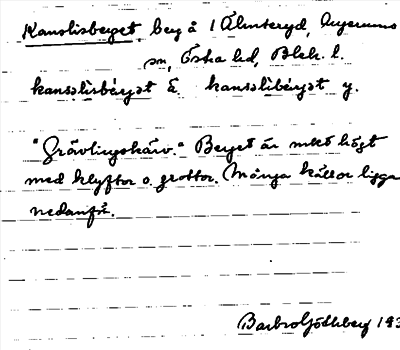 Kanslisberget berg å 1 Älmteryd, Augerums
sn, Östra hd, Blek. l.
kansslisbérgət ä. kansslibérgət y.
"Grävlingskärv." Berget är mkt högt
med klyftor o. grottor. Många källor ligga
nedanför.
Barbro Göthberg 193